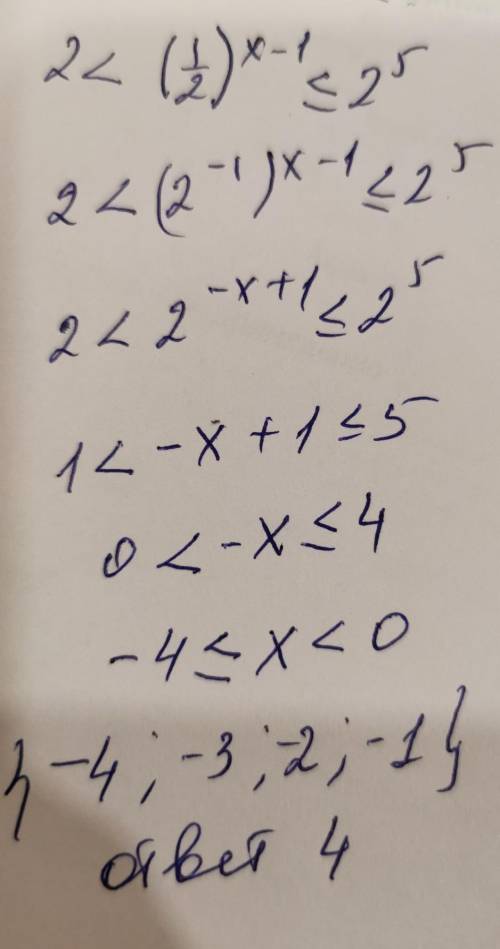 2 < (1/2)^x-1 ≤ 2^5
2 < (2^-1)^x-1 ≤ 2^5
2 < 2^-x+1 ≤ 2^5
1 < -x + 1 ≤ 5
0 < -x ≤ 4
-4 ≤ x < 0
{-4; -3; -2; -1}
ответ 4